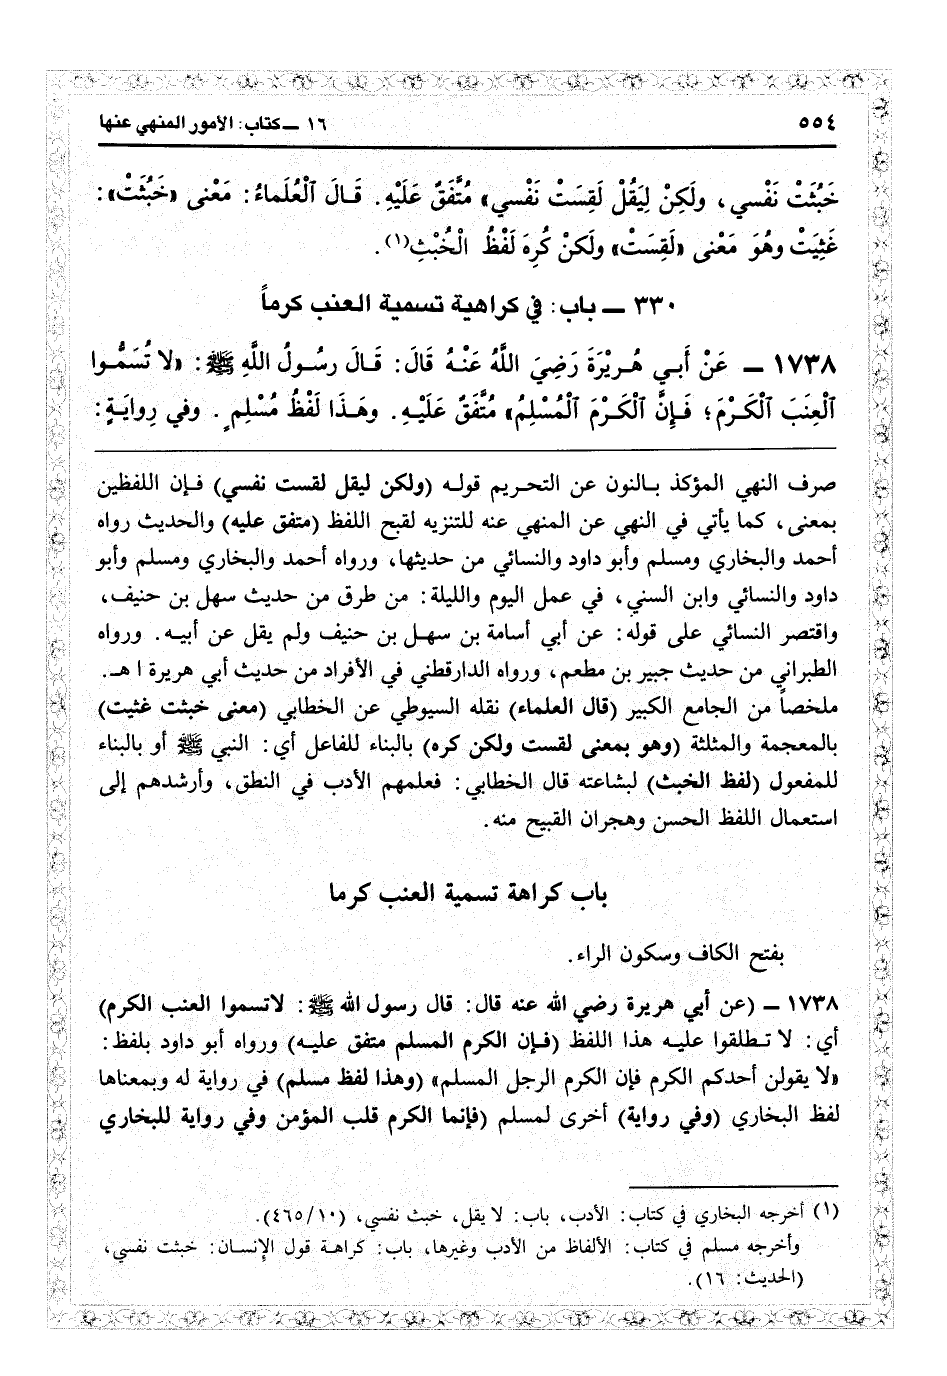 ٥٥٤
١٦ ــ كتاب: الأمور المنهي عنها
خَبُثَتْ نَفْسي، ولَكِنْ لِيَقُلْ لَقِسَتْ نَفْسي» مُتَّفَقٌ عَلَيْهِ. قَالَ ٱلْعُلَماءُ: مَعْنى «خَبُثَتْ»:
غَثِيَتْ وهُوَ مَعْنى «لَقِسَتْ» ولَكنْ كُرِهَ لَفْظُ الْخُبْثِ(١).
٣٣٠ ــ باب: في كراهية تسمية العنب كرماً
١٧٣٨ ــ عَنْ أَبـي هُـرَيْرَةَ رَضِيَ اللَّهُ عَنْـهُ قَالَ: قَـالَ رسُـولُ اللَّهِ ﷺ: «لا تُسَمُّـوا
ٱلْعِنَبَ ٱلْكَـرْمَ؛ فَـإِنَّ ٱلْكَـرْمَ ٱلْمُسْلِمُ» مُتَّفَقٌ عَلَيْـهِ. وهَـذَا لَفْظُ مُسْلِمٍ. وفي رِوايَـةٍ:
صرف النهي المؤكذ بـالنون عن التحـريم قولـه (ولكن ليقل لقست نفسي) فـإن اللفظين
بمعنى، كما يأتي في النهي عن المنهي عنه للتنزيه لقبح اللفظ (متفق عليه) والحديث رواه
أحمد والبخاري ومسلم وأبو داود والنسائي من حديثها، ورواه أحمد والبخاري ومسلم وأبو
داود والنسائي وابن السني، في عمل اليوم والليلة: من طرق من حديث سهل بن حنيف،
واقتصر النسائي على قوله: عن أبي أسامة بن سهـل بن حنيف ولم يقل عن أبيـه. ورواه
الطبراني من حديث جبير بن مطعم، ورواه الدارقطني في الأفراد من حديث أبي هريرة ا هـ.
ملخصاً من الجامع الكبير (قال العلماء) نقله السيوطي عن الخطابي (معنى خبثت غثيت)
بالمعجمة والمثلثة (وهو بمعنى لقست ولكن كره) بالبناء للفاعل أي: النبي ﷺ أو بالبناء
للمفعول (لفظ الخبث) لبشاعته قال الخطابي: فعلمهم الأدب في النطق، وأرشدهم إلى
استعمال اللفظ الحسن وهجران القبيح منه.
باب كراهة تسمية العنب كرما
بفتح الكاف وسكون الراء.
١٧٣٨ ــ (عن أبي هريرة رضي الله عنه قال: قال رسول الله ﷺ: لاتسموا العنب الكرم)
أي: لا تـطلقوا عليـه هذا اللفظ (فـإن الكرم المسلم متفق عليـه) ورواه أبو داود بلفظ:
«لا يقولن أحدكم الكرم فإن الكرم الرجل المسلم» (وهذا لفظ مسلم) في رواية له وبمعناها
لفظ البخاري (وفي رواية) أخرى لمسلم (فإنما الكرم قلب المؤمن وفي رواية للبخاري
(١) أخرجه البخاري في كتاب: الأدب، باب: لا يقل، خبث نفسي، (١٠/٤٦٥).
وأخرجه مسلم في كتاب: الألفاظ من الأدب وغيرها، باب: كراهـة قول الإِنسـان: خبثت نفسي،
(الحديث: ١٦).